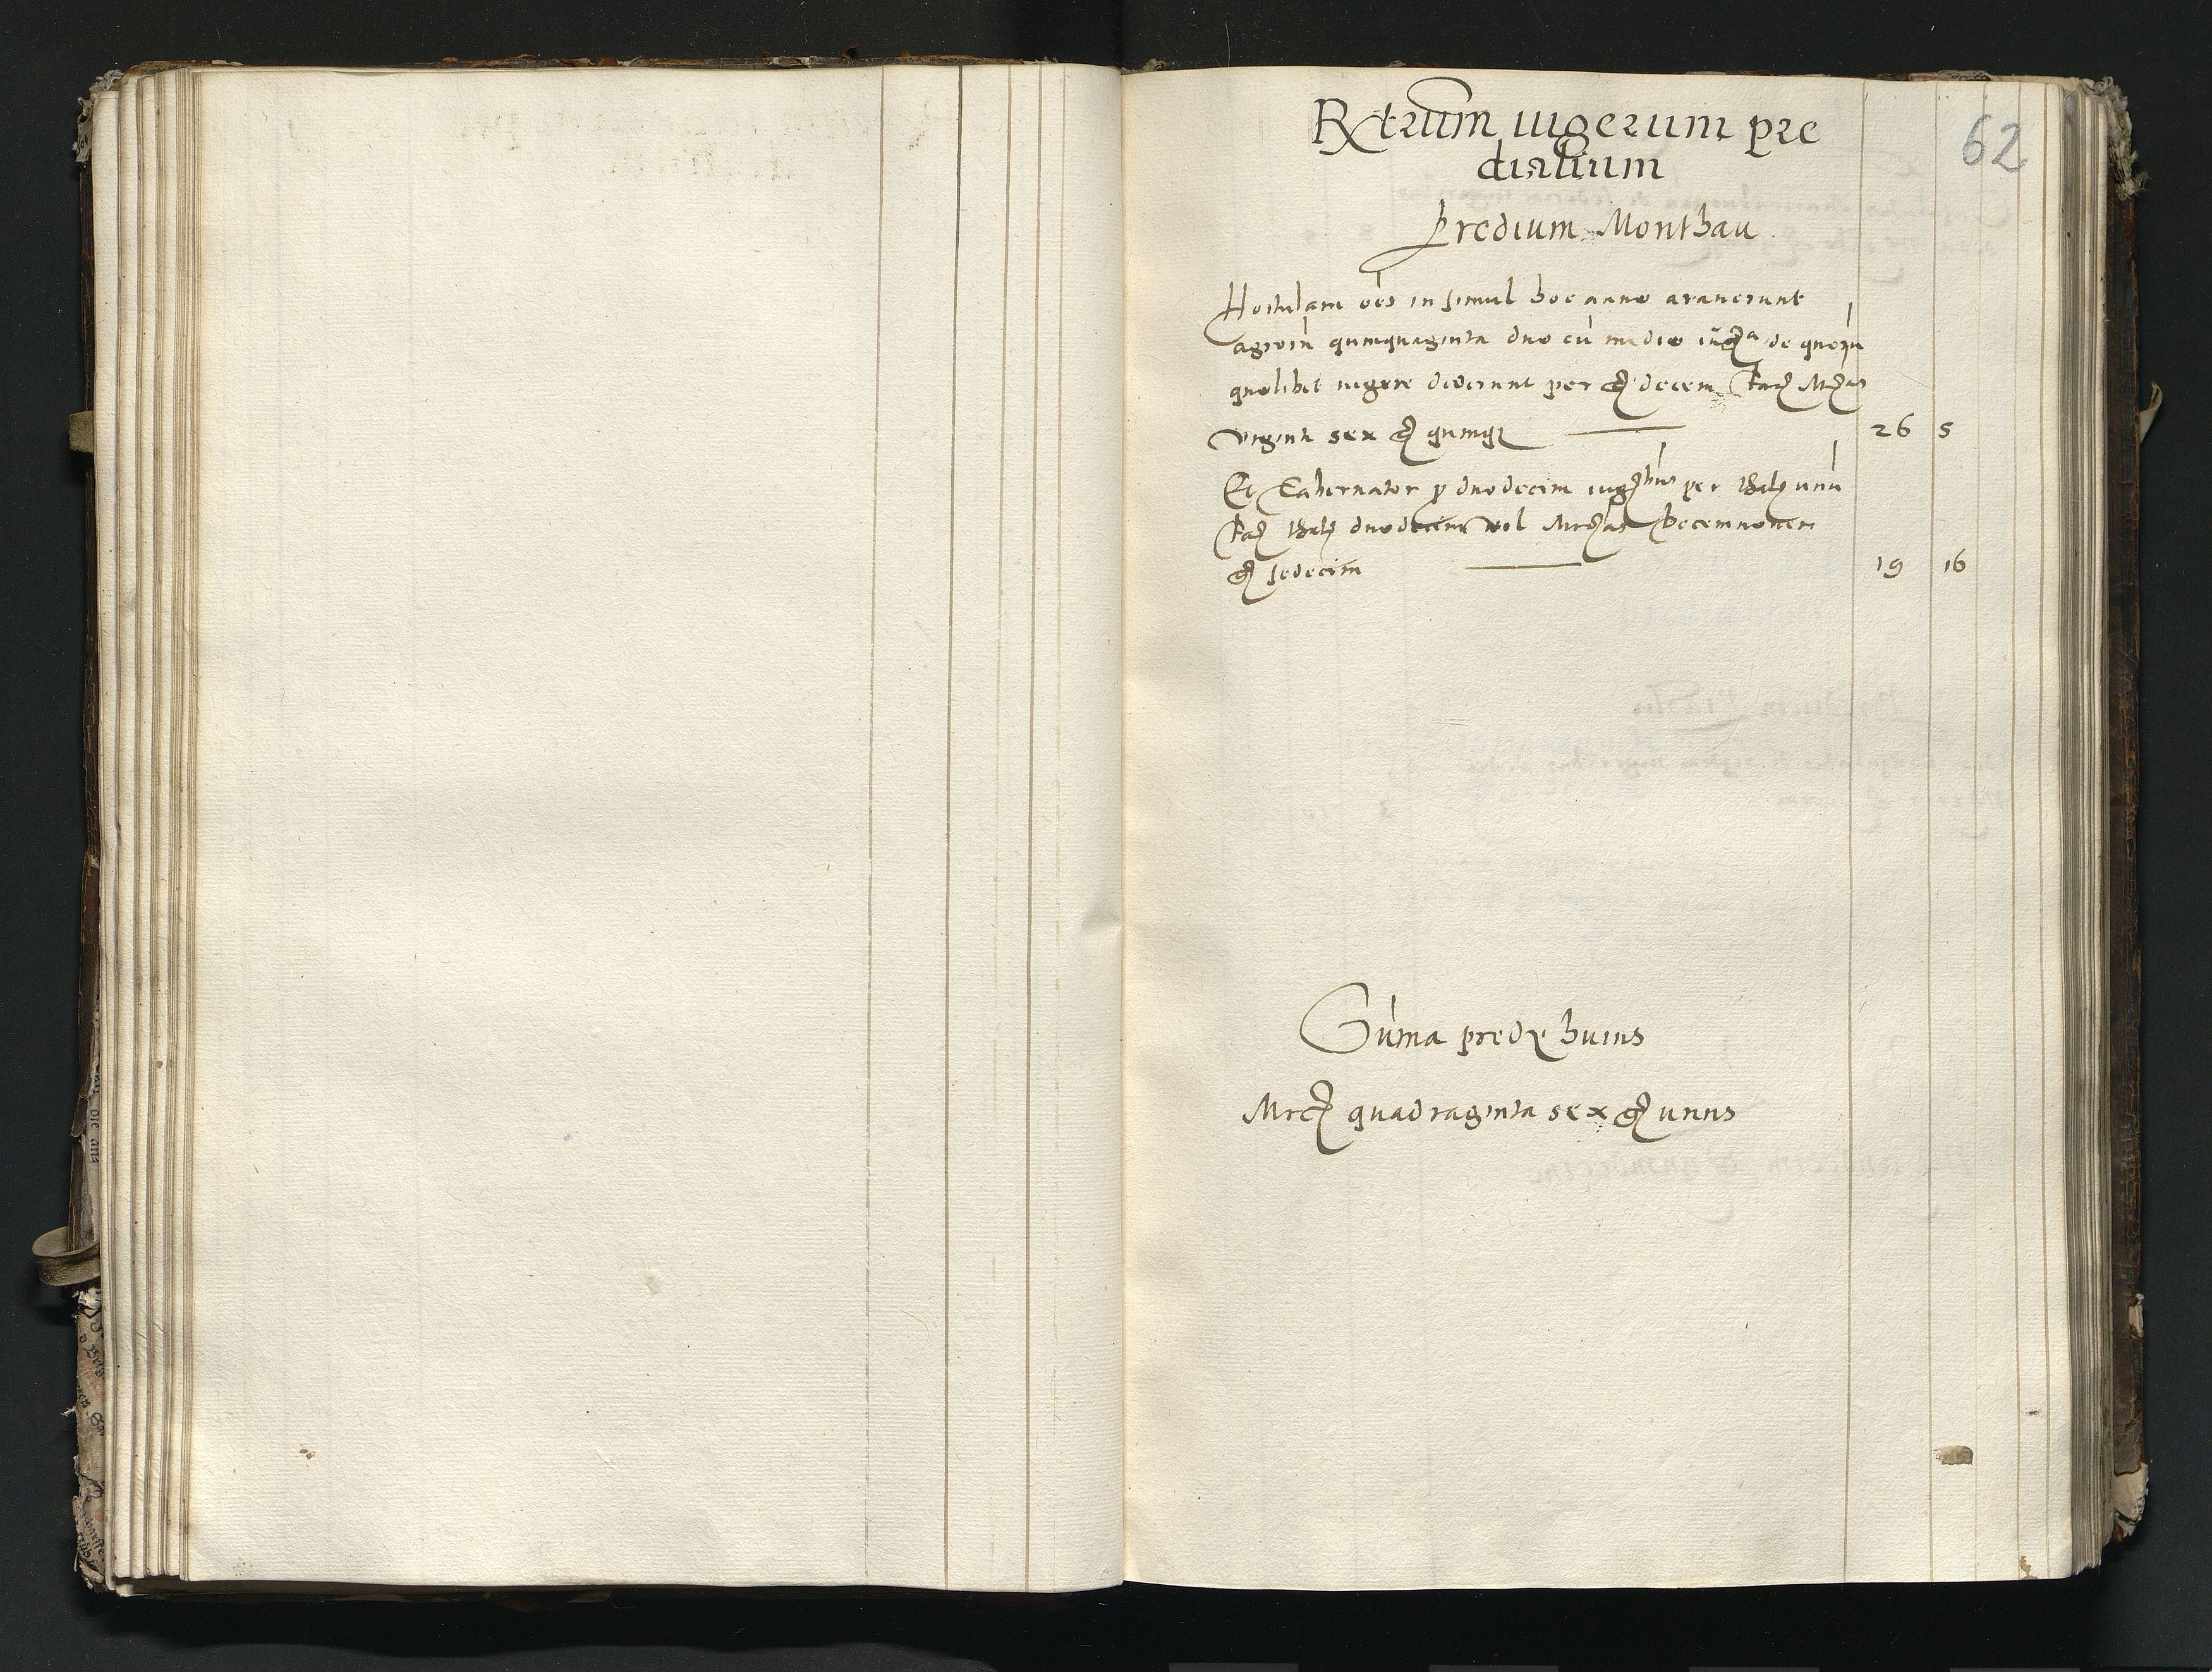 62
Rxtrum iugerum pre
dialium
Predium Monthau
Hortulani oe͠s in simul hoc anno arauerunt
agroru͠ quinquaginta duo cu͠ medio iug̃a de quoru͠
quolibet iugere dederunt per gͬ decem facͭ Mͬcas
viginti sex gͬ quinqꝫ 26 5
Et Tabernator p duodecim iugͬibus per talͬ unu͠
facͭ talͬ duodecim vel Mrcas Decemnouem
gͬ sedecim 19 16
Su͠ma predij huius
Mrcͭ quadraginta sex gͬ unus